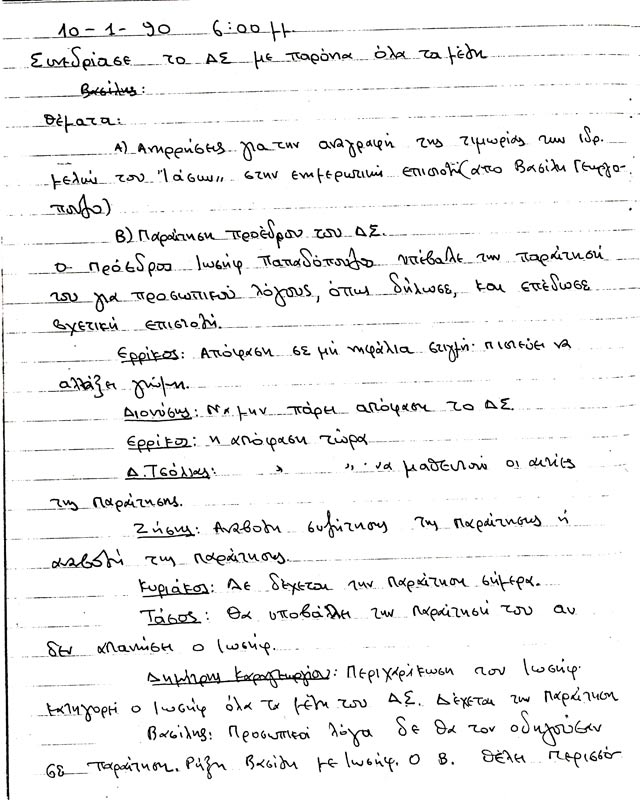 10-1-90 6:00 μμ.
Συνεδρίασε το ΔΣ με παρόντα όλα τα μέλη
Βασίλης:
Θέματα:
Α) Αντιρρήσεις για την αναγραφή της τιμωρίας των ιδρ.
μελών του "Ιάσων" στην ενημερωτική επιστολή (από Βασίλη Γεωργο-
πουλο)
Β) Παραίτηση προέδρου του ΔΣ.
Ο πρόεδρος Ιωσήφ Παπαδόπουλος υπέβαλε την παραίτησή
του για προσωπικούς λόγους, όπως δήλωσε, και επέδωσε
σχετική επιστολή.
Ερρίκος: Απόφαση σε μη νηφάλια στιγμή· πιστεύει να
αλλάξει γνώμη.
Διονύσης: Να μην πάρει απόφαση το ΔΣ.
Ερρίκος: η απόφαση τώρα
Δ. Τσόλιας: " " · να μαθευτούν οι αιτίες
της παραίτησης.
Ζήσης: Αναβολή συζήτησης της παραίτησης ή
αναβολή της παραίτησης.
Κυριάκος: Δε δέχεται την παραίτηση σήμερα.
Τάσος: Θα υποβάλλει την παραίτησή του αν
δεν απαντήσει ο Ιωσήφ.
Δημήτρης Καραγεωργίου: Περιχαράκωση του Ιωσήφ·
κατηγορεί ο Ιωσήφ όλα τα μέλη του ΔΣ. Δέχεται την παραίτηση
Βασίλης: Προσωπικοί λόγοι δε θα τον οδηγούσαν
σε παραίτηση. Ρήξη Βασίλη με Ιωσήφ. Ο Β. θέλει περισσό